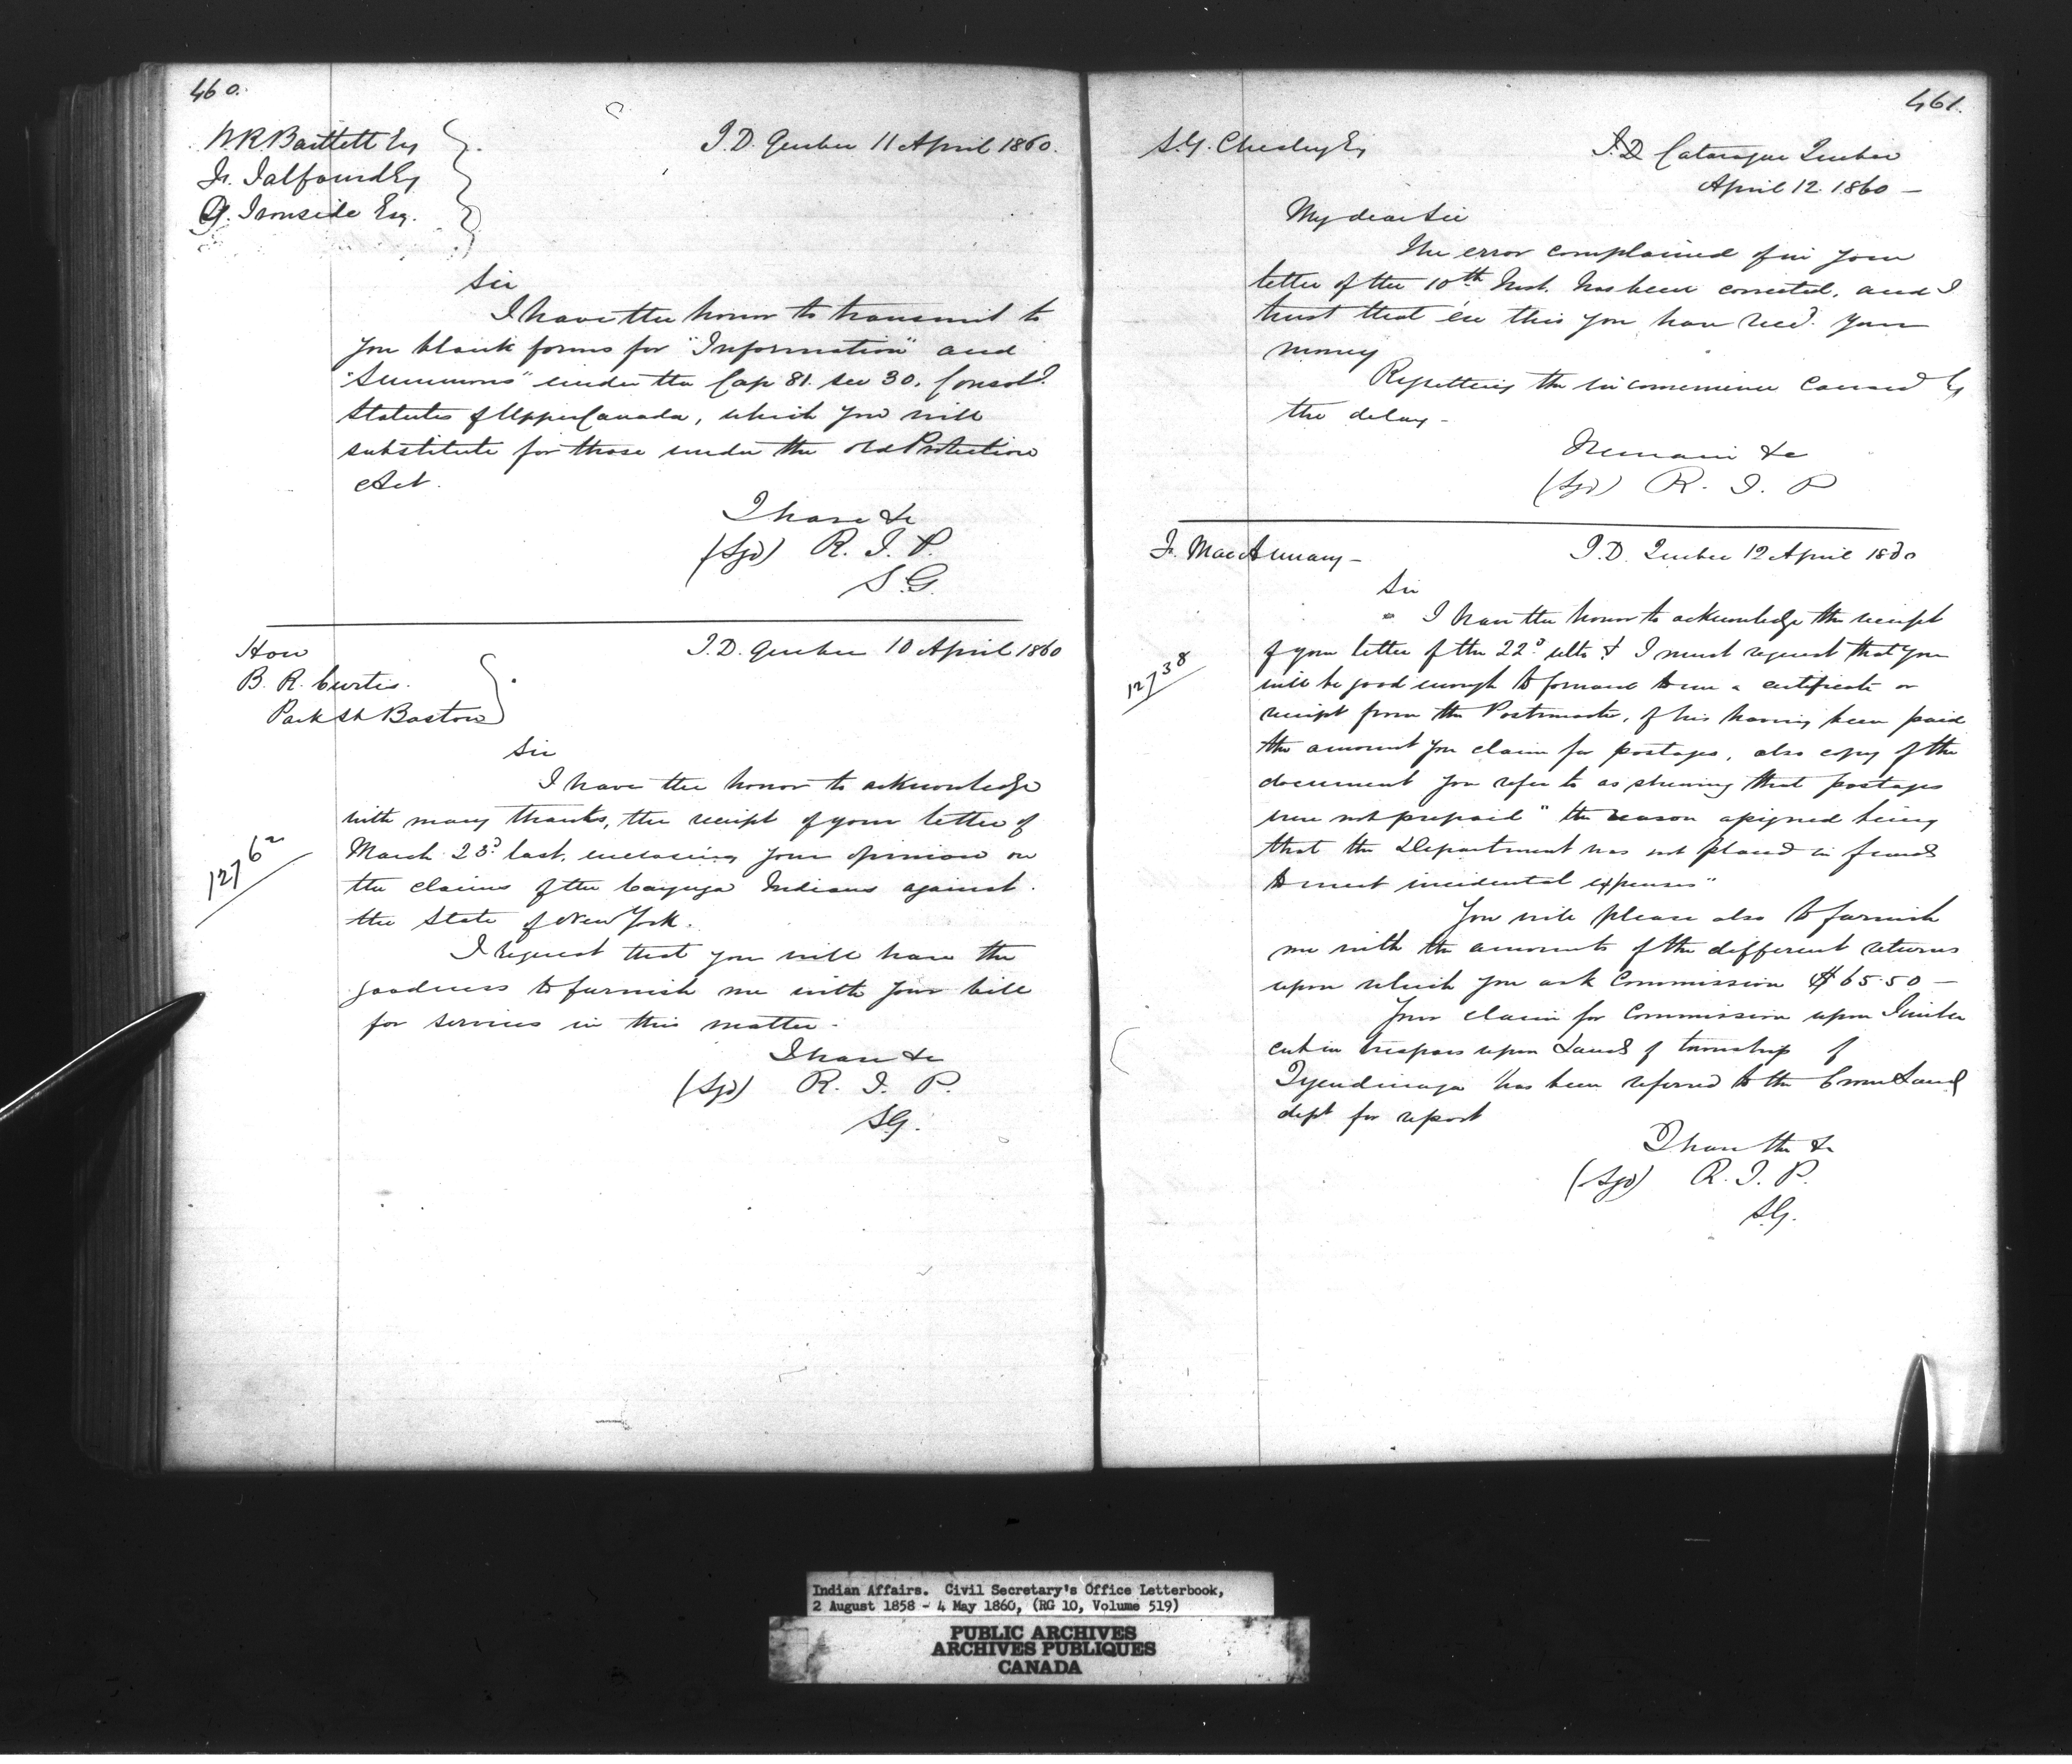 460.
W.R. Bartlett Esq
Fr. Talfourd Esq
G. Ironside Esq.
I.D. Quebec 11 April 1860.
Sir
I have the honor to transmit to
you blank forms for "Information" and
"Summons" under the Cap 81. sec 30. Consold.
Statutes of Upper Canada, which you will
substitute for those under the old Protection
Act.
I have &c
(Sgd) R. T. P.
S.G.
Hon
B. R. Curtis.
Park St Boston
I.D. Quebec 10 April 1860
Sir
I have the honor to acknowledge
with many thanks, the receipt of your letter of
March 23d last, enclosing your opinion on
the claims of the Cayuga Indians against
the State of New York.
12762
I request that you will have the
goodness to furnish me with your bill
for services in this matter.
I have &c
(Sgd) R. T. P.
SG.
461.
S.Y. Chesley Esq
I.D. Cataraque Quebec
April 12. 1860 —
My dear Sir
The error complained of in your
letter of the 10th Inst. has been corrected, and I
trust that ere this you have recd. your
money
Regretting the inconvenience caused by
the delay -
Remain &c
(Sgd) R. T. P
Fr. MacAnnany —
I.D. Quebec 12 April 1860
Sir
I have the honor to acknowledge the receipt
of your letter of the 22d ulto & I must request that you
12738
will be good enough to forward to me a certificate or
receipt from the Postmaster, of his having been paid
the amount you claim for postages, also copy of the
document you refer to as shewing that postages
were not prepaid "the reason assigned being
that the Department was not placed in funds
to meet incidental expenses"
You will please also to furnish
me with the amounts of the different returns
upon which you ask Commission $65.50 —
Your claim for Commission upon Timber
cut in trespass upon Lands of township of
Tyendinaga has been referred to the Crown Land
dept for report
I have the &c
(Sgd) R. T. P.
SG.
Indian Affairs. Civil Secretary's Office Letterbook,
2 August 1858 - 4 May 1860, (RG 10, Volume 519)
PUBLIC ARCHIVES
ARCHIVES PUBLIQUES
CANADA